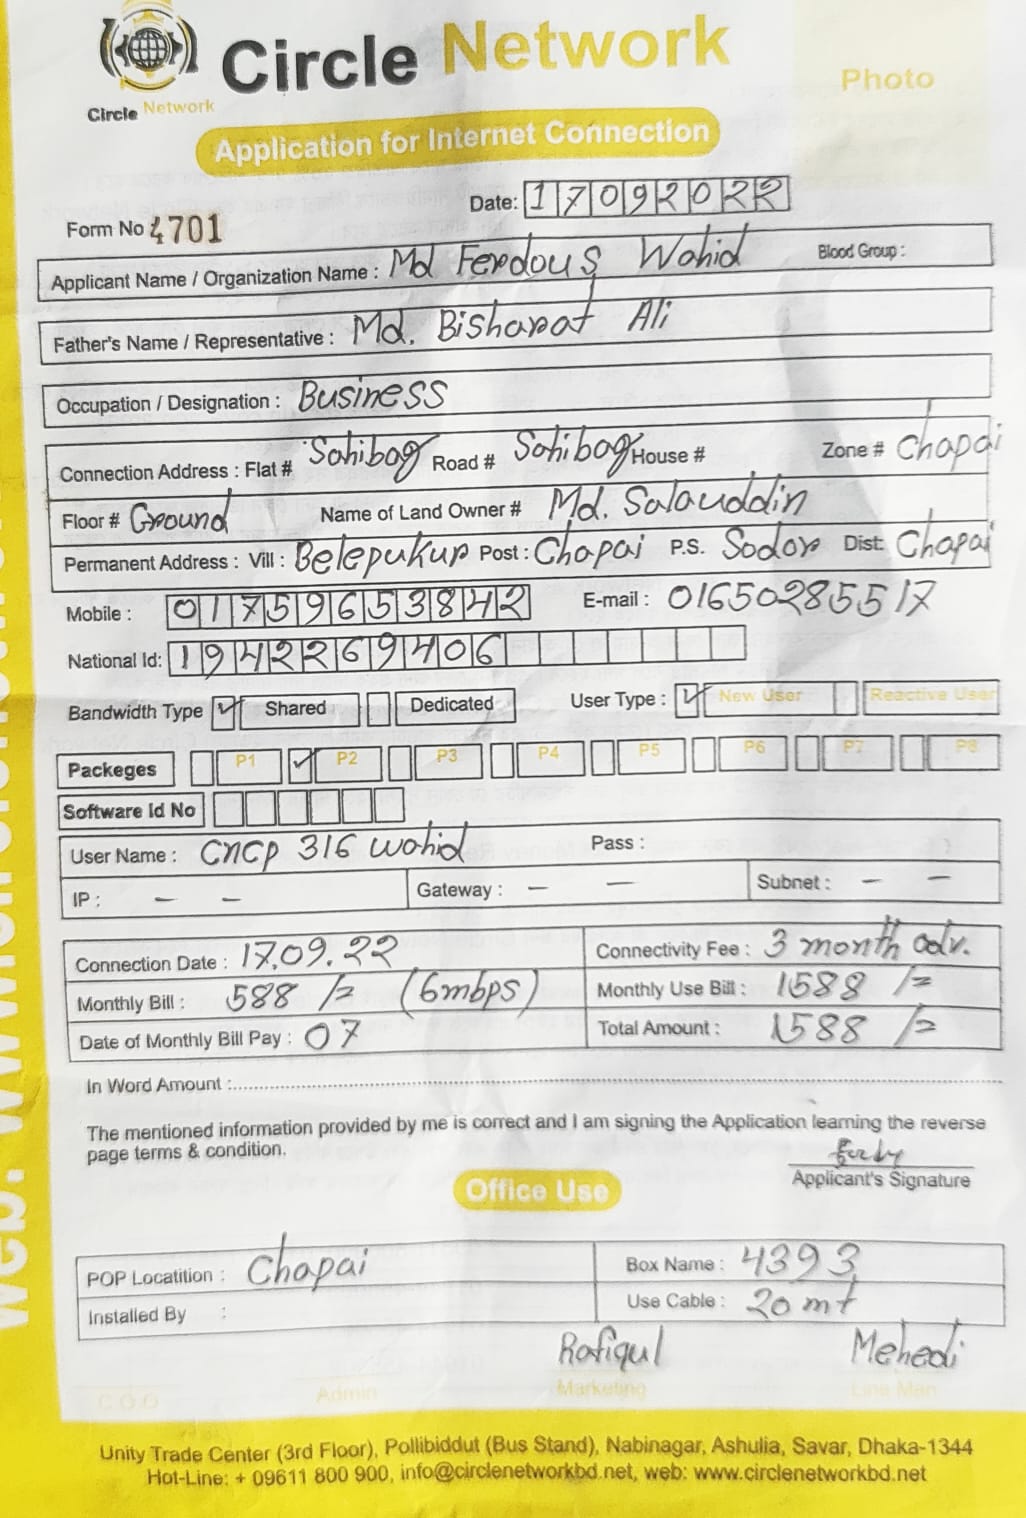 Circle Network
Circle Network
Photo
Application for Internet Connection
Date: 17092022
Form No 4701
Applicant Name / Organization Name : Md Ferdous Wahid Blood Group :
Father's Name / Representative : Md. Bisharat Ali
Occupation / Designation : Business
Connection Address : Flat # Sahibag Road # Sahibag House # Zone # Chapai
Floor # Ground Name of Land Owner # Md. Salauddin
Permanent Address : Vill : Belepukur Post : Chapai P.S. Sodor Dist: Chapai
Mobile : 01759653842 E-mail : 01650285517
National Id: 1942269406
Bandwidth Type Shared Dedicated User Type : New User Reactive User
Packeges P1 P2 P3 P4 P5 P6 P7 P8
Software Id No
User Name : CNCP 316 Wahid Pass :
IP : – – Gateway : – – Subnet : – –
Connection Date : 17.09.22 Connectivity Fee : 3 month adv.
Monthly Bill : 588 /= (6mbps) Monthly Use Bill : 1588 /=
Date of Monthly Bill Pay : 07 Total Amount : 1588 /=
In Word Amount :
The mentioned information provided by me is correct and I am signing the Application learning the reverse
page terms & condition.
Applicant's Signature
Office Use
POP Locatition : Chapai Box Name : 4393
Installed By : Use Cable : 20 mt
Rafiqul Mehedi
C O O Admin Marketing Line Man
Unity Trade Center (3rd Floor), Pollibiddut (Bus Stand), Nabinagar, Ashulia, Savar, Dhaka-1344
Hot-Line: + 09611 800 900, info@circlenetworkbd.net, web: www.circlenetworkbd.net